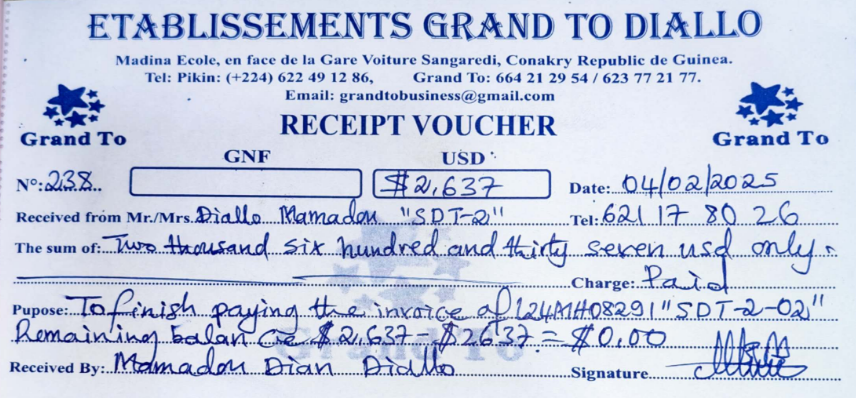 ETABLISSEMENTS GRAND TO DIALLO
Madina Ecole, en face de la Gare Voiture Sangaredi, Conakry Republic de Guinea.
Tel: Pikin: (+224) 622 49 12 86, Grand To: 664 21 29 54 / 623 77 21 77.
Email: grandtobusiness@gmail.com
Grand To RECEIPT VOUCHER Grand To
GNF USD
N°: 238 $2,637 Date: 04/02/2025
Received from Mr./Mrs. Diallo Mamadou "SDT-2" Tel: 621 17 80 26
The sum of: Two thousand six hundred and thirty seven usd only.
Charge: Paid
Pupose: To finish paying the invoice of L24A1H08291 "SDT-2-02"
Remaining balance $2,637 - $2637 = $0.00
Grand To
Received By: Mamadou Dian Diallo Signature